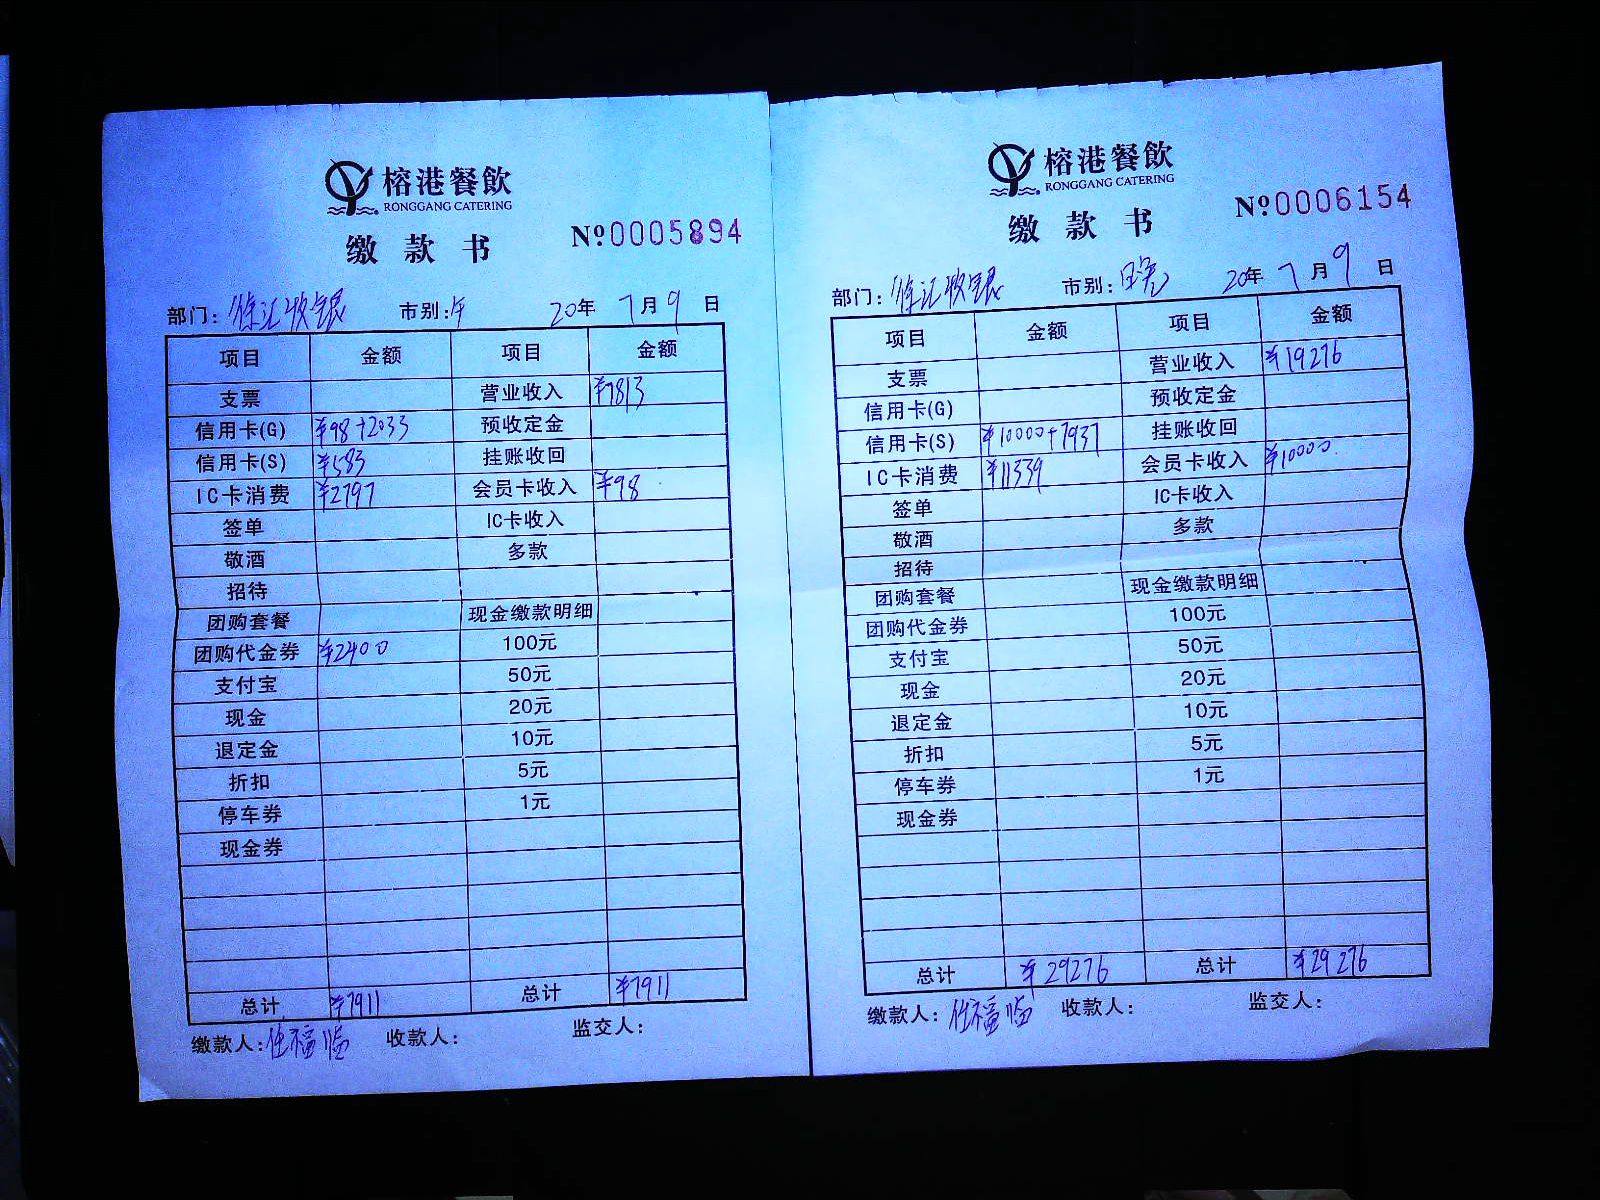 榕港餐飲
RONGGANG CATERING
缴款书
№0005894
部门:徐汇收银 市别:午 20年7月9日
项目 金额 项目 金额
支票 营业收入 ¥7813
信用卡(G) ¥98+2033 预收定金
信用卡(S) ¥583 挂账收回
IC卡消费 ¥2797 会员卡收入 ¥98
签单 IC卡收入
敬酒 多款
招待
团购套餐 现金缴款明细
团购代金券 ¥2400 100元
支付宝 50元
现金 20元
退定金 10元
折扣 5元
停车券 1元
现金券
总计 ¥7911 总计 ¥7911
缴款人:任福临 收款人: 监交人:
榕港餐飲
RONGGANG CATERING
缴款书
№0006154
部门:徐汇收银 市别: 20年7月9日
项目 金额 项目 金额
支票 营业收入 ¥19276
信用卡(G) 预收定金
信用卡(S) ¥10000+7937 挂账收回
IC卡消费 ¥11339 会员卡收入 ¥10000
签单 IC卡收入
敬酒 多款
招待
团购套餐 现金缴款明细
团购代金券 100元
支付宝 50元
现金 20元
退定金 10元
折扣 5元
停车券 1元
现金券
总计 ¥29276 总计 ¥29276
缴款人:任福临 收款人: 监交人: